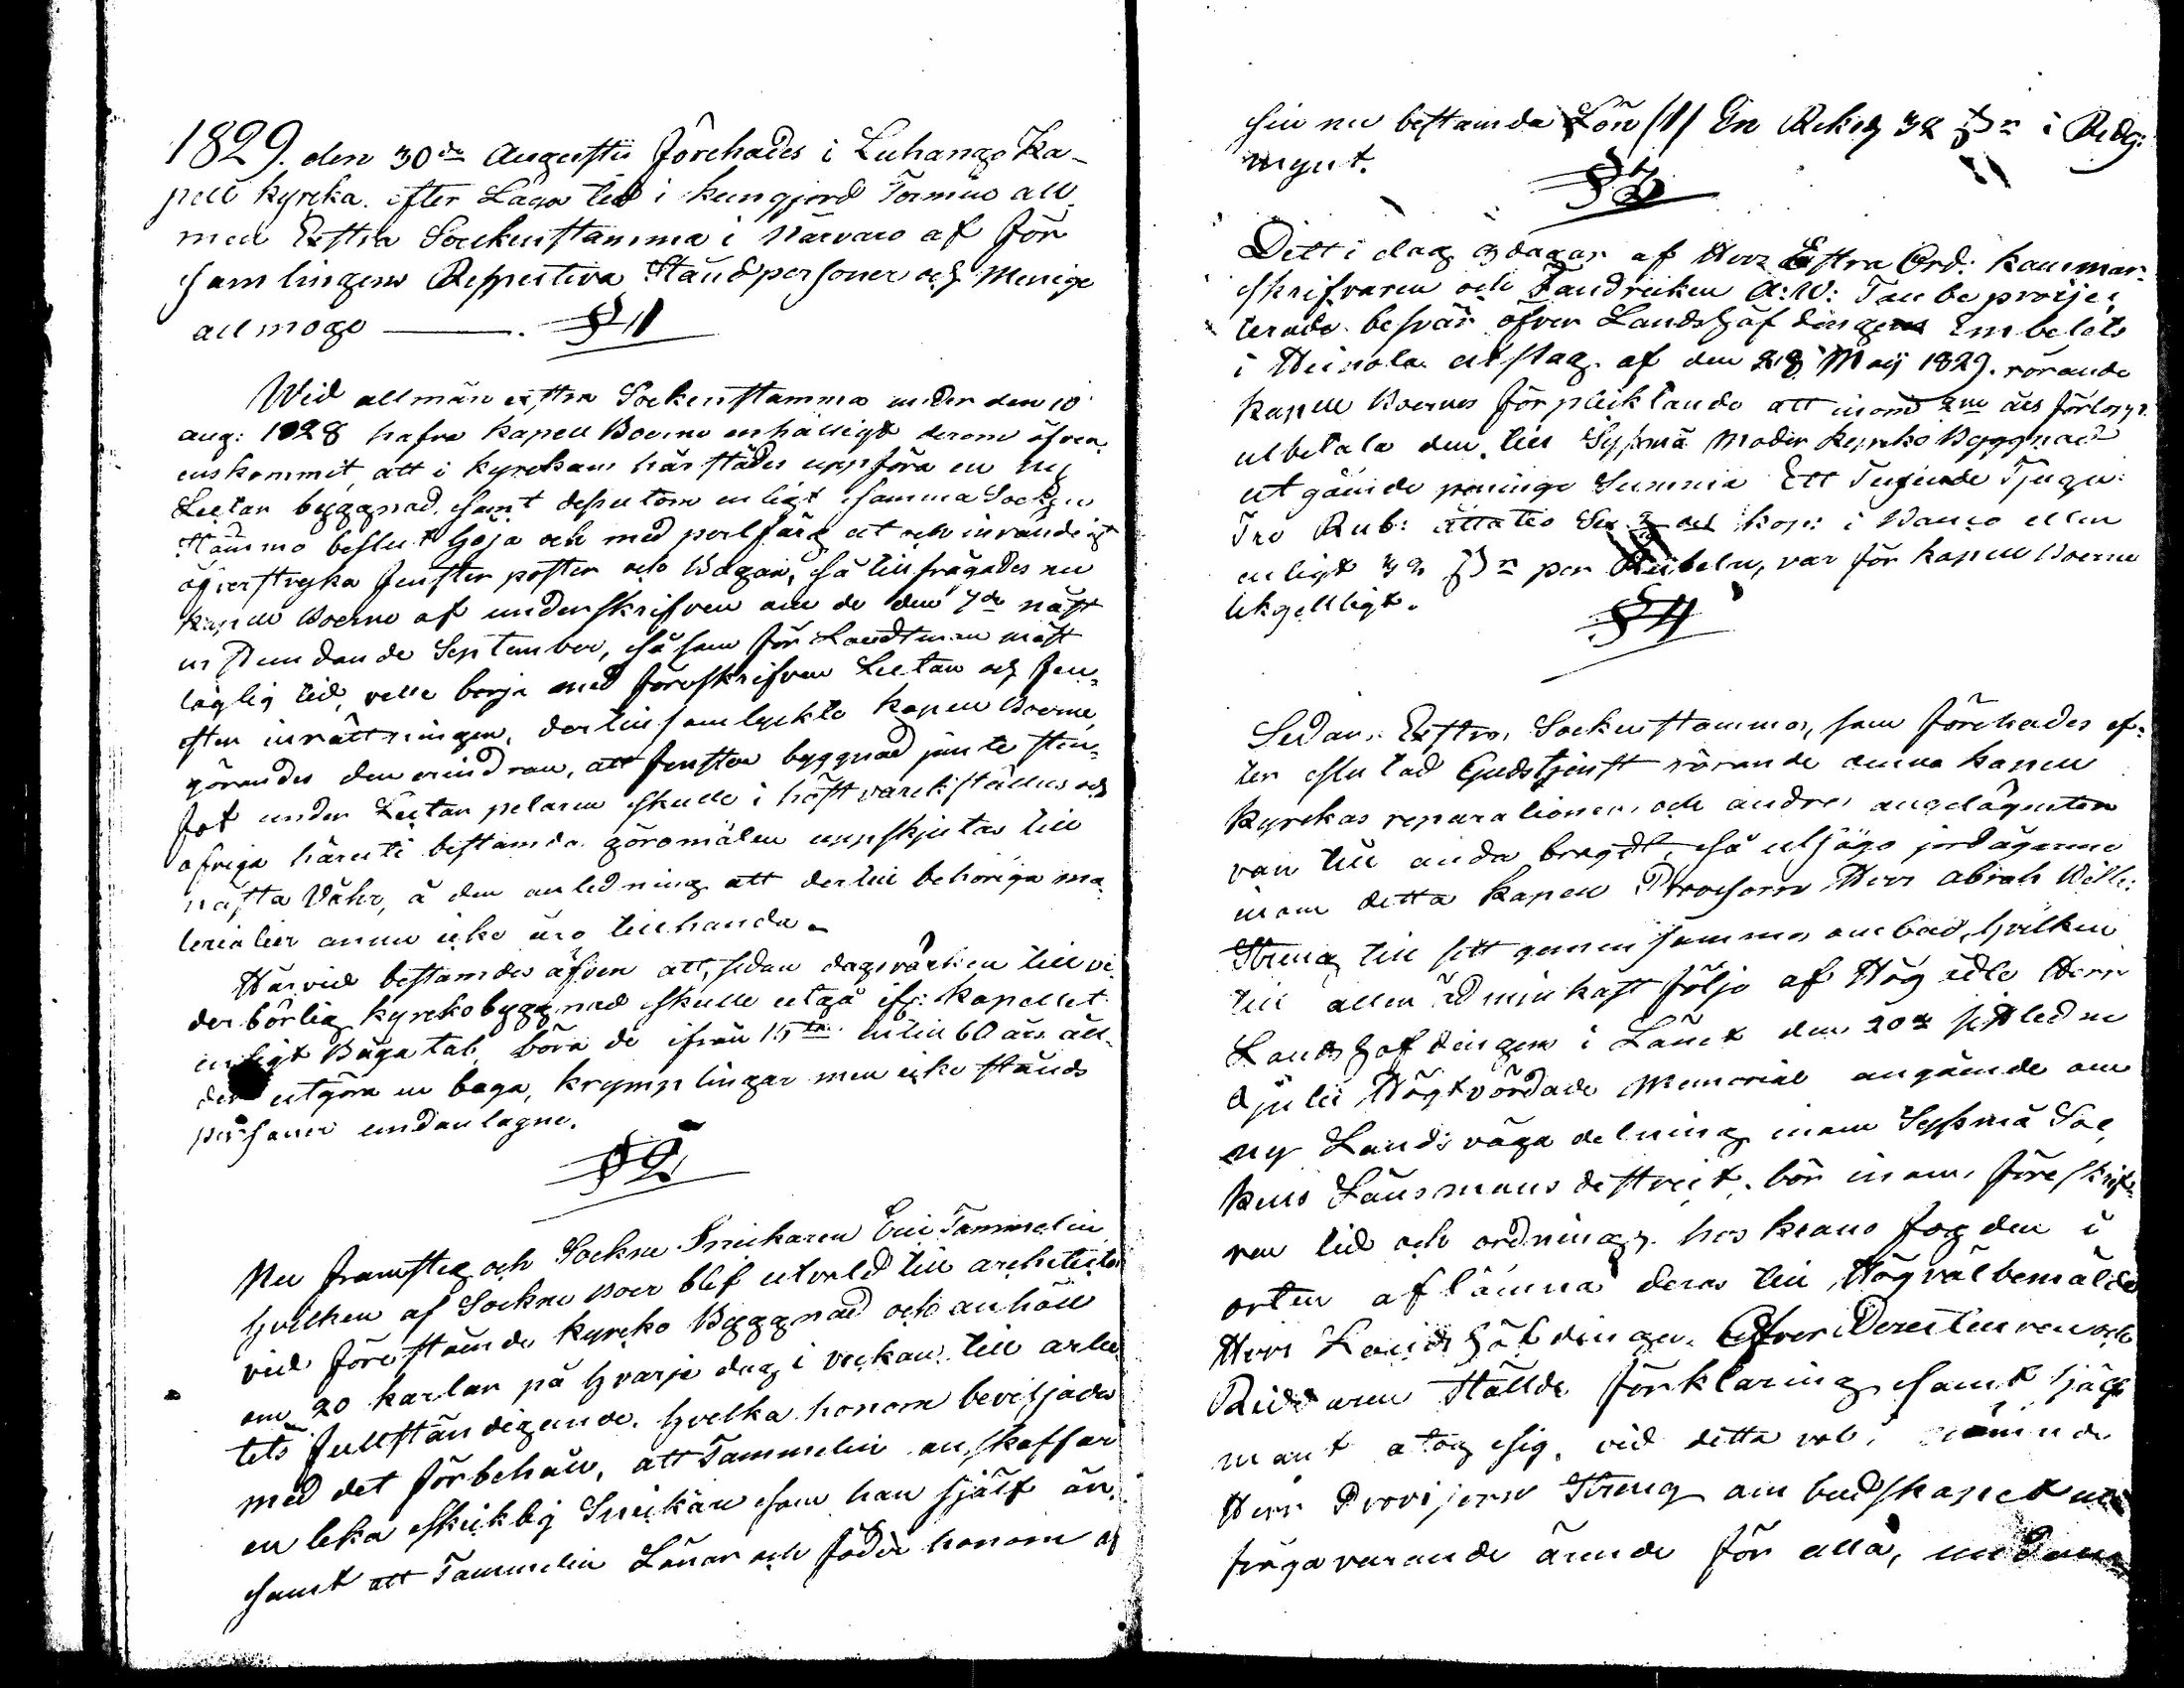 1829. den 30de Augustii förehades i Luhango Ka-
pell kyrcka. efter Laga tid i kungjord Termin all
män Extra Sockenstämma i Närvaro af för
samlingens Respective Ståndspersoner och Menige
allmoge ———. § 1
Wid allmän extra Sockenstamma under den 10
aug: 1828 hafva kapell Boerne enhälligt derom öfver
enskommit, att i kyrckan härstädes uppföra en ny
Lectar byggnad, samt dessutom enligt samma Socken
Stämmo beslut höja och med perlfärg ut och invändigt
öfverstryka fenster poster och Bågar, så tillfrågades nu
kapell Boerne af underskrifven om de den 7de näst
instundande September, såsom för Landtman mäst
läglig tid, velle börja med föreskrifven Lectar och fen-
ster inrättningen, dertill samtyckte kapell Boerne,
görandes den erindran, att fenster byggnad jämte sten-
fot under Lectar pelaren skulle i höst värckställas och
öfriga häruti bestämda göromålen uppskjutas till
nästa Våhr, å den anledning att dertill behöriga ma
terialier ännu icke äro tillhanda.
Härvid bestämdes äfven att, sedan dagsvärken till ve
derbörlig kyrckobyggnad skulle utgå ifr: kapellet
enligt Båga tal, böra de ifrån 15de intill 60 års ål-
der utgöra en boga, krymplingar men icke stånds
personer undantagne.
§ 2
Nu framsteg och Sockne Snickaren Eric Tammelin
hvilken af Sockne Boer blef utvald till architecte
vid förestående kyrcko Byggnad och anhöll
om 20 karlar på hvarje dag i veckan till arbe
tets fullständigande. hvilka honom beviljades
med det förbehåll, att Tammelin anskaffar
en lika skicklig Snickare som han sjelf är,
samt att Tammelin Lönar och föder honom af
sin nu bestämda Lön /:/ En Riksd 32 i Rdg:
myut.
§ 3
Dett i dag 8 dagar af Herr Extra Ord: kammar
skrifvaren och Fandricken A: W: Taube projec
terade besvär öfver Landshöfdinge Embetets
i Heinola utslag af den 28 Maij 1829. rörande
kapell Boernes förplicktande att inom 2ne års förlopp
utbetala den till Syssmä Moder kyrcko Byggnad
utgående peninge Summa Ett Tusende Tjugu
Tre Rub: åttatio kop: i Banco eller
enligt 32 per Rubeln, var för kapell Boerne
likgiltigt.
§ 4
Sedan Extra Sockenstamma, som förehades ef-
ter slutad Gudstjenst rörande denna kapell
kyrckas reparationer och andra angelägenter
var till ända bragdt, så utsågo jordägarene
inom detta kapell Provisorn Herr Abrah Wilh:
Streng till sitt gemensamma ombud, hvilken
till allerödmjukast följe af Hög ädle Herr
Landshöfdingen i Länet den 20de sistledne
Julii Högtvördade Memorial angående om
ny Landsväga delning inom Syssmä Soc
kens Länsmans districkt. bör inom föreskrif-
ven tid och ordning hos krono fogden i
orten aflämna dess till Högvälbemälde
Herr Landshöfdingen. Öfver Directeuren och
Riddaren ställde förklaring samt sjelf
mant åtog sig. vid detta val nämnde
Herr Provisorn Streng ombudskapet uti
frågavarande ärende för alla, undan